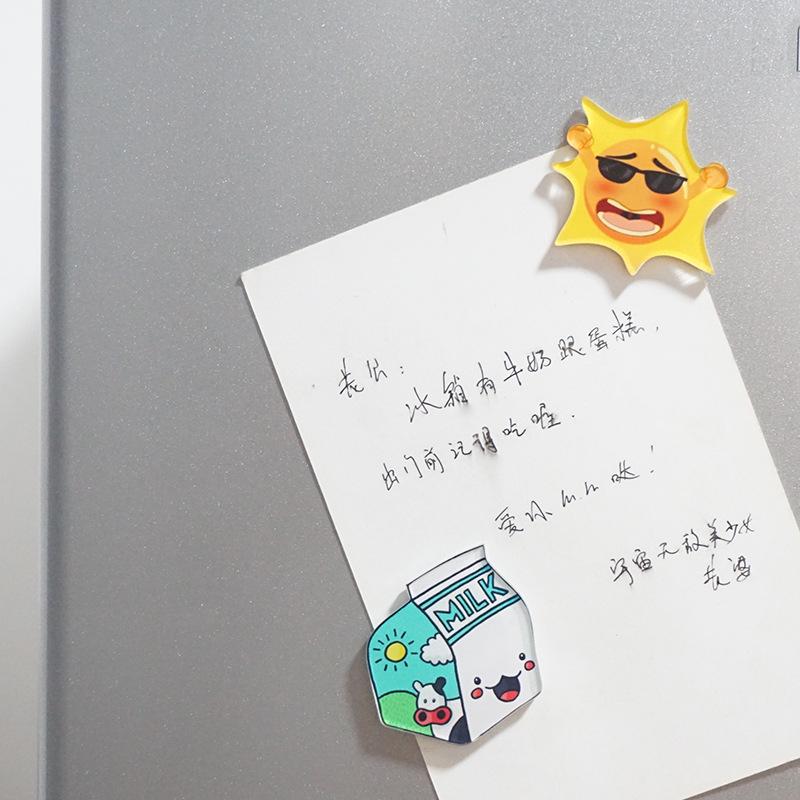 老公：
冰箱有牛奶跟蛋糕，
出门前记得吃喔.
爱你m.m哒！
宇宙无敌美少女
老婆
MILK